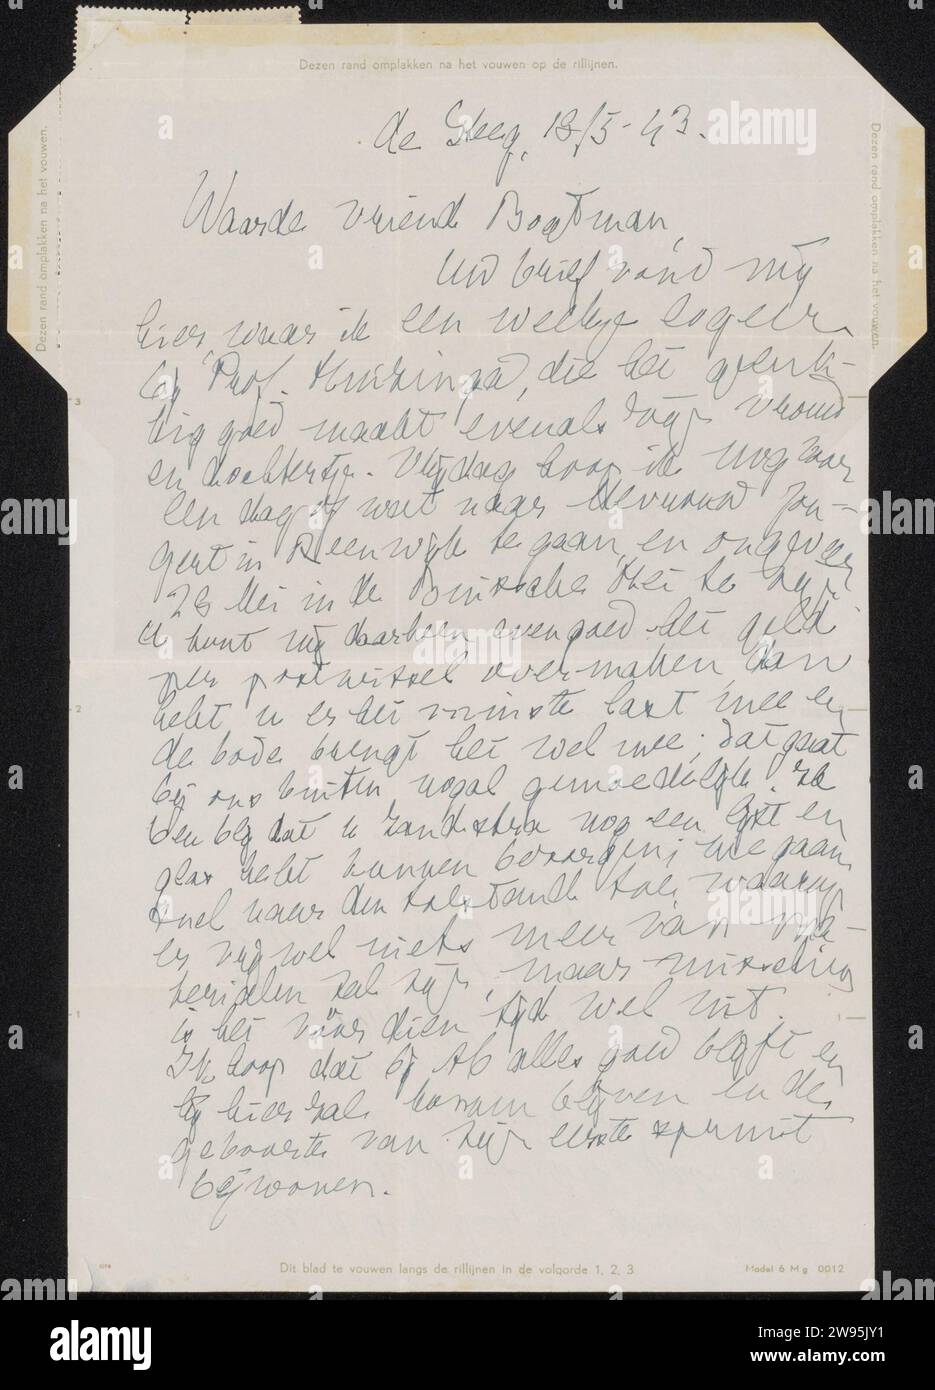 Dezen rand omplakken na het vouwen op de rillijnen.
Dezen rand omplakken na het vouwen.
Dezen rand omplakken na het vouwen.
de Steeg, 18/5-43.
Waarde vriend Bogtman,
Uw brief vond mij
hier waar ik een weekje logeer
bij Prof. Huizinga, die het geluk-
kig goed maakt evenals zijn vrouw
en dochtertje. Vrijdag hoop ik nog voor
een dag of wat naar Jon-
gert in Reeuwijk te gaan, en ongeveer
28 Mei in de Bussche Hei te zijn
U kunt mij daarheen evengoed het geld
per postwissel overmaken, dan
hebt u er het minste last mee en
de bode brengt het wel mee; dat gaat
bij ons buiten nogal gemoedelijk. Ik
ben blij dat u Zandstra nog een lijst en
glas hebt kunnen bezorgen; we gaan
snel naar den toestand toe waarin
er vrijwel niets meer van
materialen zal zijn, maar misschien
is het vóór dien tijd wel uit.
Ik hoop dat bij Ab alles goed blijft en
hij hier zal kunnen blijven en de
geboorte van zijn eerste spruit
bijwonen.
3
2
1
Dit blad te vouwen langs de rillijnen in de volgorde 1, 2, 3
Model 6 Mg 0012
alamy
Image ID: 2W95JY1
www.alamy.com